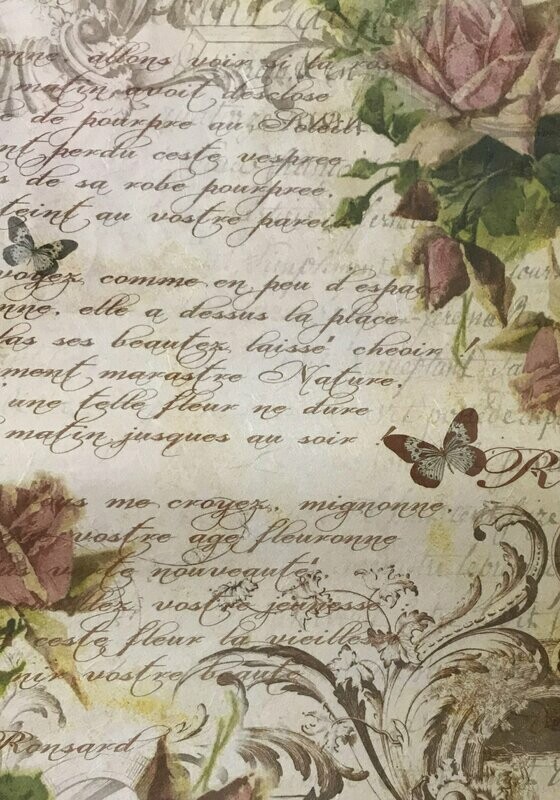 nne, allons voir si la ros
matin avoit desclose
e de pourpre au Soleil,
nt perdu ceste vespree
s de sa robe pourpree,
teint au vostre pareil
voyez comme en peu d'espace
nne, elle a dessus la place
las ses beautez laissé cheoir !
ment marastre Nature,
une telle fleur ne dure
matin jusques au soir !
R
us me croyez, mignonne,
vostre age fleuronne
te nouveauté,
illez vostre jeunesse
ceste fleur la vieilles
nir vostre beaut
Ronsard